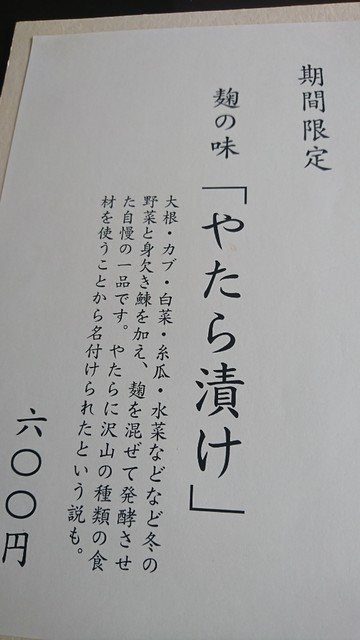 期間限定
麹の味
「やたら漬け」
大根・カブ・白菜・糸瓜・水菜などなど冬の
野菜と身欠き鰊を加え、麹を混ぜて発酵させ
た自慢の一品です。やたらに沢山の種類の食
材を使うことから名付けられたという説も。
六〇〇円